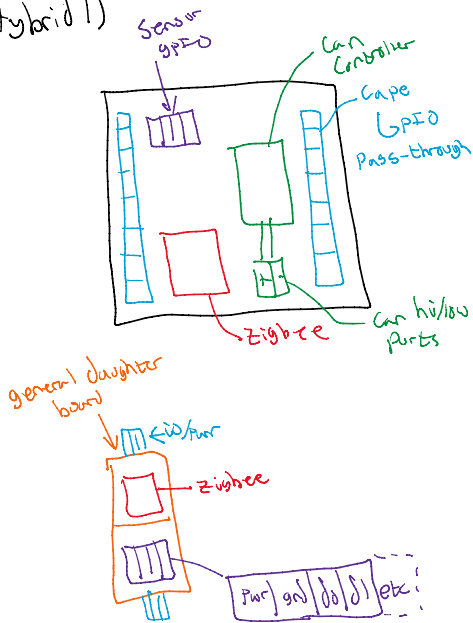 Hybrid 1)
Sensor
GPIO
Can
Controller
Cape
GPIO
Pass-through
Zigbee
Can hi/low
Ports
general daughter
board
io/pwr
Zigbee
Pwr gnd d0 d1 etc